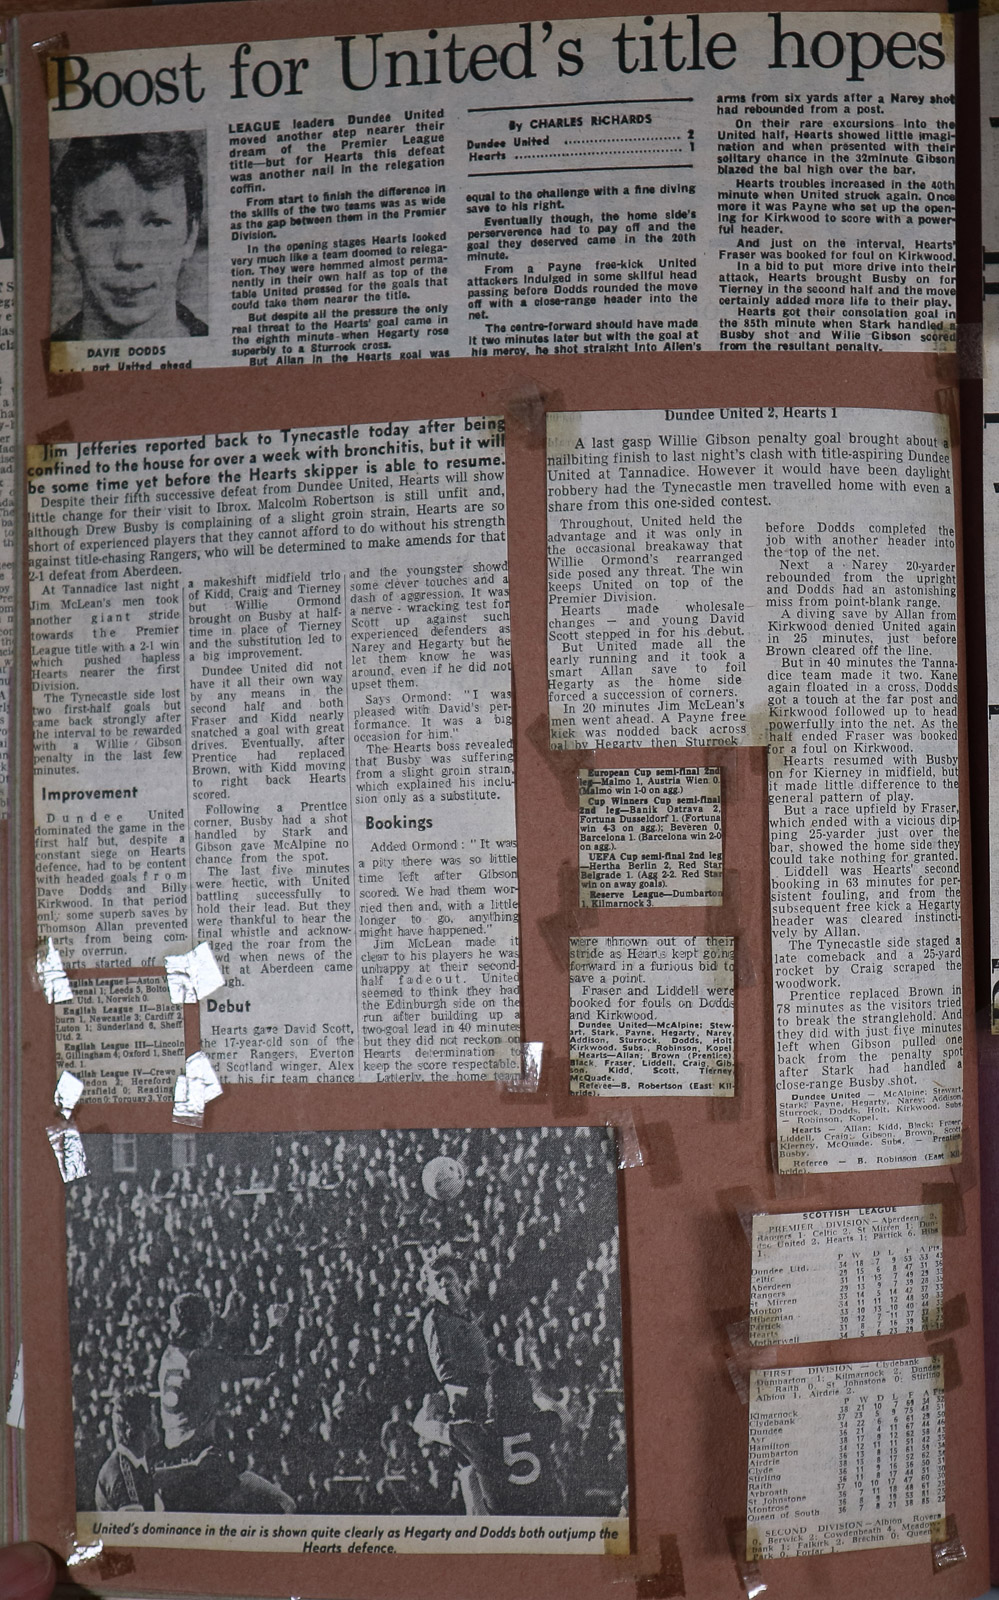 Boost for United's title hopes
DAVIE DODDS
. . . put United ahead
LEAGUE leaders Dundee United
moved another step nearer their
dream of the Premier League
title—but for Hearts this defeat
was another nail in the relegation
coffin.
From start to finish the difference in
the skills of the two teams was as wide
as the gap between them in the Premier
Division.
In the opening stages Hearts looked
very much like a team doomed to relega-
tion. They were hemmed almost perma-
nently in their own half as top of the
table United pressed for the goals that
could take them nearer the title.
But despite all the pressure the only
real threat to the Hearts' goal came in
the eighth minute when Hegarty rose
superbly to a Sturrock cross.
But Allan in the Hearts goal was
By CHARLES RICHARDS
Dundee United .................. 2
Hearts .................. 1
equal to the challenge with a fine diving
save to his right.
Eventually though, the home side's
perserverence had to pay off and the
goal they deserved came in the 20th
minute.
From a Payne free-kick United
attackers indulged in some skilful head
passing before Dodds rounded the move
off with a close-range header into the
net.
The centre-forward should have made
it two minutes later but with the goal at
his mercy, he shot straight into Allen's
arms from six yards after a Narey shot
had rebounded from a post.
On their rare excursions into the
United half, Hearts showed little imagi-
nation and when presented with their
solitary chance in the 32minute Gibson
blazed the bal high over the bar.
Hearts troubles increased in the 40th
minute when United struck again. Once
more it was Payne who set up the open-
ing for Kirkwood to score with a power-
ful header.
And just on the interval, Hearts'
Fraser was booked for foul on Kirkwood.
In a bid to put more drive into their
attack, Hearts brought Busby on for
Tierney in the second half and the move
certainly added more life to their play.
Hearts got their consolation goal in
the 85th minute when Stark handled a
Busby shot and Willie Gibson scored
from the resultant penalty.
Jim Jefferies reported back to Tynecastle today after being
confined to the house for over a week with bronchitis, but it will
be some time yet before the Hearts skipper is able to resume.
Despite their fifth successive defeat from Dundee United, Hearts will show
little change for their visit to Ibrox. Malcolm Robertson is still unfit and,
although Drew Busby is complaining of a slight groin strain, Hearts are so
short of experienced players that they cannot afford to do without his strength
against title-chasing Rangers, who will be determined to make amends for that
2-1 defeat from Aberdeen.
At Tannadice last night
Jim McLean's men took
another giant stride
towards the Premier
League title with a 2-1 win
which pushed hapless
Hearts nearer the first
Division.
The Tynecastle side lost
two first-half goals but
came back strongly after
the interval to be rewarded
with a Willie Gibson
penalty in the last few
minutes.
Improvement
Dundee United
dominated the game in the
first half but, despite a
constant siege on Hearts
defence, had to be content
with headed goals from
Dave Dodds and Billy
Kirkwood. In that period
only some superb saves by
Thomson Allan prevented
Hearts from being com-
ely overrun.
arts started off
a makeshift midfield trio
of Kidd, Craig and Tierney
but Willie Ormond
brought on Busby at half-
time in place of Tierney
and the substitution led to
a big improvement.
Dundee United did not
have it all their own way
by any means in the
second half and both
Fraser and Kidd nearly
snatched a goal with great
drives. Eventually, after
Prentice had replaced
Brown, with Kidd moving
to right back Hearts
scored.
Following a Prentice
corner, Busby had a shot
handled by Stark and
Gibson gave McAlpine no
chance from the spot.
The last five minutes
were hectic, with United
battling successfully to
hold their lead. But they
were thankful to hear the
final whistle and acknow-
dged the roar from the
wd when news of the
lt at Aberdeen came
ugh.
Debut
Hearts gave David Scott,
the 17-year-old son of the
former Rangers, Everton
d Scotland winger, Alex
t his fir team chance
and the youngster showed
some clever touches and a
dash of aggression. It was
a nerve-wracking test for
Scott up against such
experienced defenders as
Narey and Hegarty but he
let them know he was
around, even if he did not
upset them.
Says Ormond: "I was
pleased with David's per-
formance. It was a big
occasion for him."
The Hearts boss revealed
that Busby was suffering
from a slight groin strain,
which explained his inclu-
sion only as a substitute.
Bookings
Added Ormond: "It was
a pity there was so little
time left after Gibson
scored. We had them wor-
ried then and, with a little
longer to go, anything
might have happened."
Jim McLean made it
clear to his players he was
unhappy at their second-
half fadeout. United
seemed to think they had
the Edinburgh side on the
run after building up a
two-goal lead in 40 minutes
but they did not reckon on
Hearts determination to
keep the score respectable.
Latterly, the home team
English League I—Aston
rsenal 1; Leeds 5, Bolton
Utd. 1, Norwich 0.
English League II—Black-
burn 1, Newcastle 3; Cardiff 2,
Luton 1; Sunderland 6, Sheff.
Utd. 2.
English League III—Lincoln
2, Gillingham 4; Oxford 1, Sheff.
Wed. 1.
English League IV—Crewe
Hereford
Reading
Torquay 3, York
Dundee United 2, Hearts 1
A last gasp Willie Gibson penalty goal brought about a
nailbiting finish to last night's clash with title-aspiring Dundee
United at Tannadice. However it would have been daylight
robbery had the Tynecastle men travelled home with even a
share from this one-sided contest.
Throughout, United held the
advantage and it was only in
the occasional breakaway that
Willie Ormond's rearranged
side posed any threat. The win
keeps United on top of the
Premier Division.
Hearts made wholesale
changes — and young David
Scott stepped in for his debut.
But United made all the
early running and it took a
smart Allan save to foil
Hegarty as the home side
forced a succession of corners.
In 20 minutes Jim McLean's
men went ahead. A Payne free
kick was nodded back across
goal by Hegarty then Sturrock
before Dodds completed the
job with another header into
the top of the net.
Next a Narey 20-yarder
rebounded from the upright
and Dodds had an astonishing
miss from point-blank range.
A diving save by Allan from
Kirkwood denied United again
in 25 minutes, just before
Brown cleared off the line.
But in 40 minutes the Tanna-
dice team made it two. Kane
again floated in a cross, Dodds
got a touch at the far post and
Kirkwood followed up to head
powerfully into the net. As the
half ended Fraser was booked
for a foul on Kirkwood.
Hearts resumed with Busby
on for Kierney in midfield, but
it made little difference to the
general pattern of play.
But a race upfield by Fraser,
which ended with a vicious dip-
ping 25-yarder just over the
bar, showed the home side they
could take nothing for granted.
Liddell was Hearts' second
booking in 63 minutes for per-
sistent fouling, and from the
subsequent free kick a Hegarty
header was cleared instincti-
vely by Allan.
The Tynecastle side staged a
late comeback and a 25-yard
rocket by Craig scraped the
woodwork.
Prentice replaced Brown in
78 minutes as the visitors tried
to break the stranglehold. And
they did with just five minutes
left when Gibson pulled one
back from the penalty spot
after Stark had handled a
close-range Busby shot.
Dundee United — McAlpine; Stewart,
Stark; Payne, Hegarty, Narey; Addison,
Sturrock, Dodds, Holt, Kirkwood. Subs.
— Robinson, Kopel.
Hearts — Allan; Kidd, Black; Fraser,
Liddell, Craig; Gibson, Brown, Scott,
Kierney, McQuade. Subs. — Prentice,
Busby.
Referee — B. Robinson (East Kil-
bride).
European Cup semi-final 2nd
leg—Malmo 1, Austria Wien 0.
(Malmo win 1-0 on agg.)
Cup Winners Cup semi-final
2nd leg—Banik Ostrava 2,
Fortuna Dusseldorf 1. (Fortuna
win 4-3 on agg.); Beveren 0,
Barcelona 1. (Barcelona win 2-0
on agg.)
UEFA Cup semi-final 2nd leg
—Hertha Berlin 2, Red Star
Belgrade 1. (Agg 2-2. Red Star
win on away goals).
Reserve League—Dumbarton
1, Kilmarnock 3.
were thrown out of their
stride as Hearts kept going
forward in a furious bid to
save a point.
Fraser and Liddell were
booked for fouls on Dodds
and Kirkwood.
Dundee United—McAlpine; Stew-
art, Stark, Payne, Hegarty, Narey,
Addison, Sturrock, Dodds, Holt,
Kirkwood. Subs, Robinson, Kopel.
Hearts—Allan; Brown (Prentice)
Black, Fraser, Liddell, Craig, Gib-
son, Kidd, Scott, Tierney,
McQuade.
Referee—B. Robertson (East Kil-
bride).
5
United's dominance in the air is shown quite clearly as Hegarty and Dodds both outjump the
Hearts defence.
SCOTTISH LEAGUE
PREMIER DIVISION — Aberdeen 2,
Rangers 1; Celtic 2, St Mirren 1; Dun-
dee United 2, Hearts 1; Partick 6, Hibs
1.
P W D L F A Pts.
Dundee Utd.
Celtic
Aberdeen
Rangers
St Mirren
Morton
Hibernian
Partick
Hearts
Motherwell
FIRST DIVISION — Clydebank
Dumbarton 1; Kilmarnock 2, Dundee
1; Raith 0, St Johnstone 0; Stirling
Albion 1, Airdrie 2.
P W D L F A Pts
Kilmarnock
Clydebank
Dundee
Ayr
Hamilton
Dumbarton
Airdrie
Clyde
Stirling
Raith
Arbroath
St Johnstone
Montrose
Queen of South
SECOND DIVISION — Albion Rovers
0, Berwick 2; Cowdenbeath 4, Meadow-
bank 1; Falkirk 2, Brechin 0; Queen's
Park 0, Forfar 1.